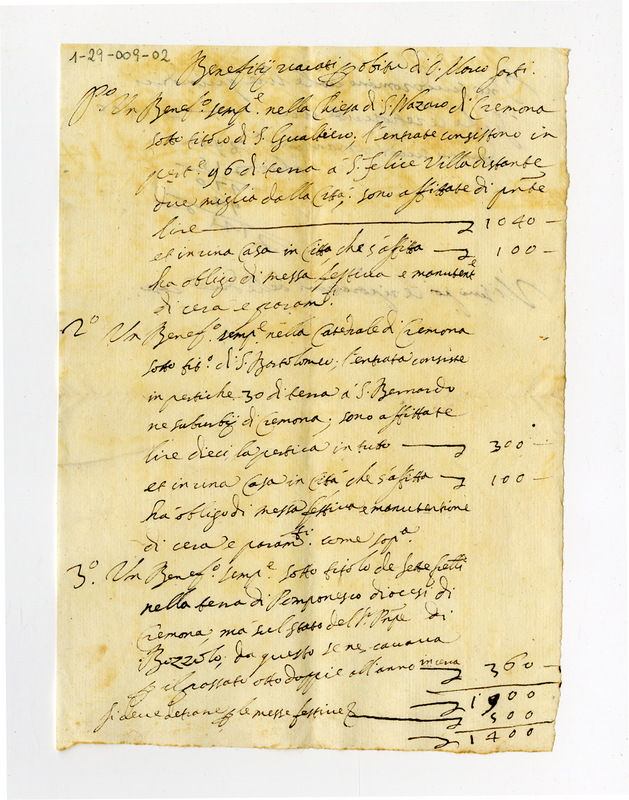 1-29-009-02
Benefitij vacati p obitu di D. Marco Sorti.
P.º Un Benef.º semp.e nella Chiesa di S. Nazaro di Cremona
sotto titolo di S. Gualtiero; l'entrate consistono in
pert.e 96 di terra à S. felice Villa distante
due miglia dalla Cità; sono affittate di pnte
lire 1040
et in una Casa in Città che s'affitta 100
ha obligo di messa festiva e manutent.e
di cera e param.ti
2º Un Benef.º semp.e nella Catedrale di Cremona
sotto tit.º di S. Bartolomeo; l'entrata consiste
in pertiche 30 di terra à S. Bernardo
ne suburbij di Cremona; sono affittate
lire dieci la pertica in tutto 300
et in una Casa in Cità che s'affitta 100
ha obligo di messa festiva e manutentione
di cera e param.ti come sop.a
3º. Un Benef.º semp.e sotto titolo de
nella terra di Pomponesco diocesi di
Cremona, ma sul stato del S.r Pnpe di
Bozzolo, da questo se ne cavava
p il passato otto doppie all'anno 360
1900
si deve detraer p le messe festive 500
1400